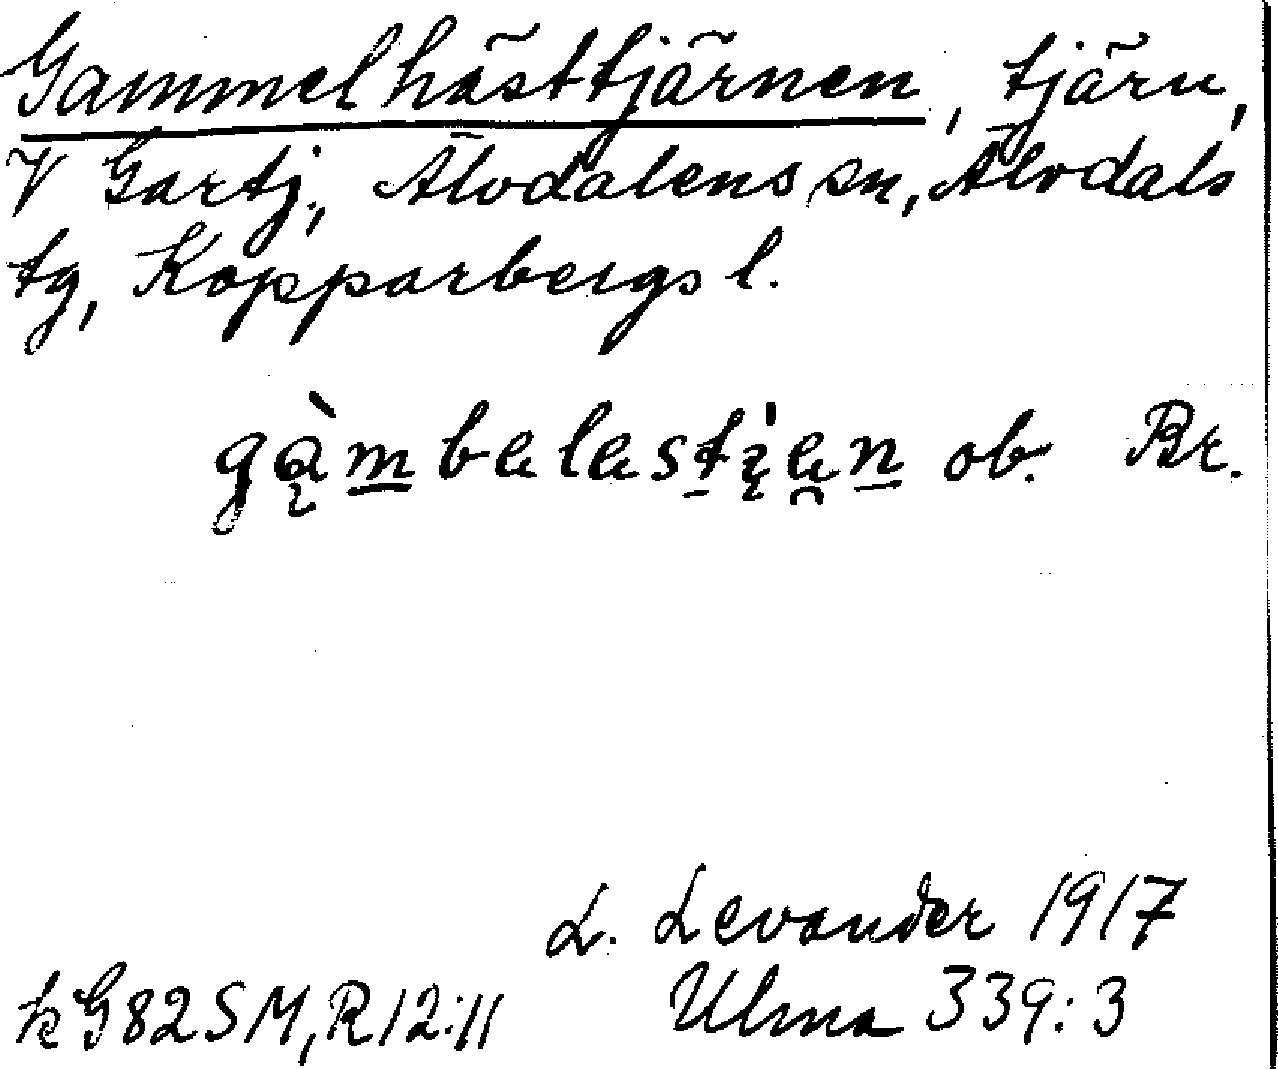 Gammelhästtjärnen, tjärn,
V Gartj., Älvdalens sn, Älvdals
tg, Kopparbergs l.
gą̀mbelestı̨̍en ob. Br.
L. Levander 1917
kG82SM, R12:11 Ulma 339:3